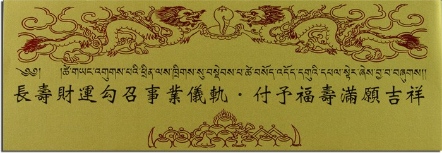 ༄༅། །ཚེ་གཡང་འགུགས་པའི་ཕྲིན་ལས་ཁྲིགས་སུ་བསྡེབས་པ་ཚེ་བསོད་འདོད་དགུའི་དཔལ་སྟེར་ཞེས་བྱ་བ་བཞུགས།།
長壽財運勾召事業儀軌．付予福壽滿願吉祥